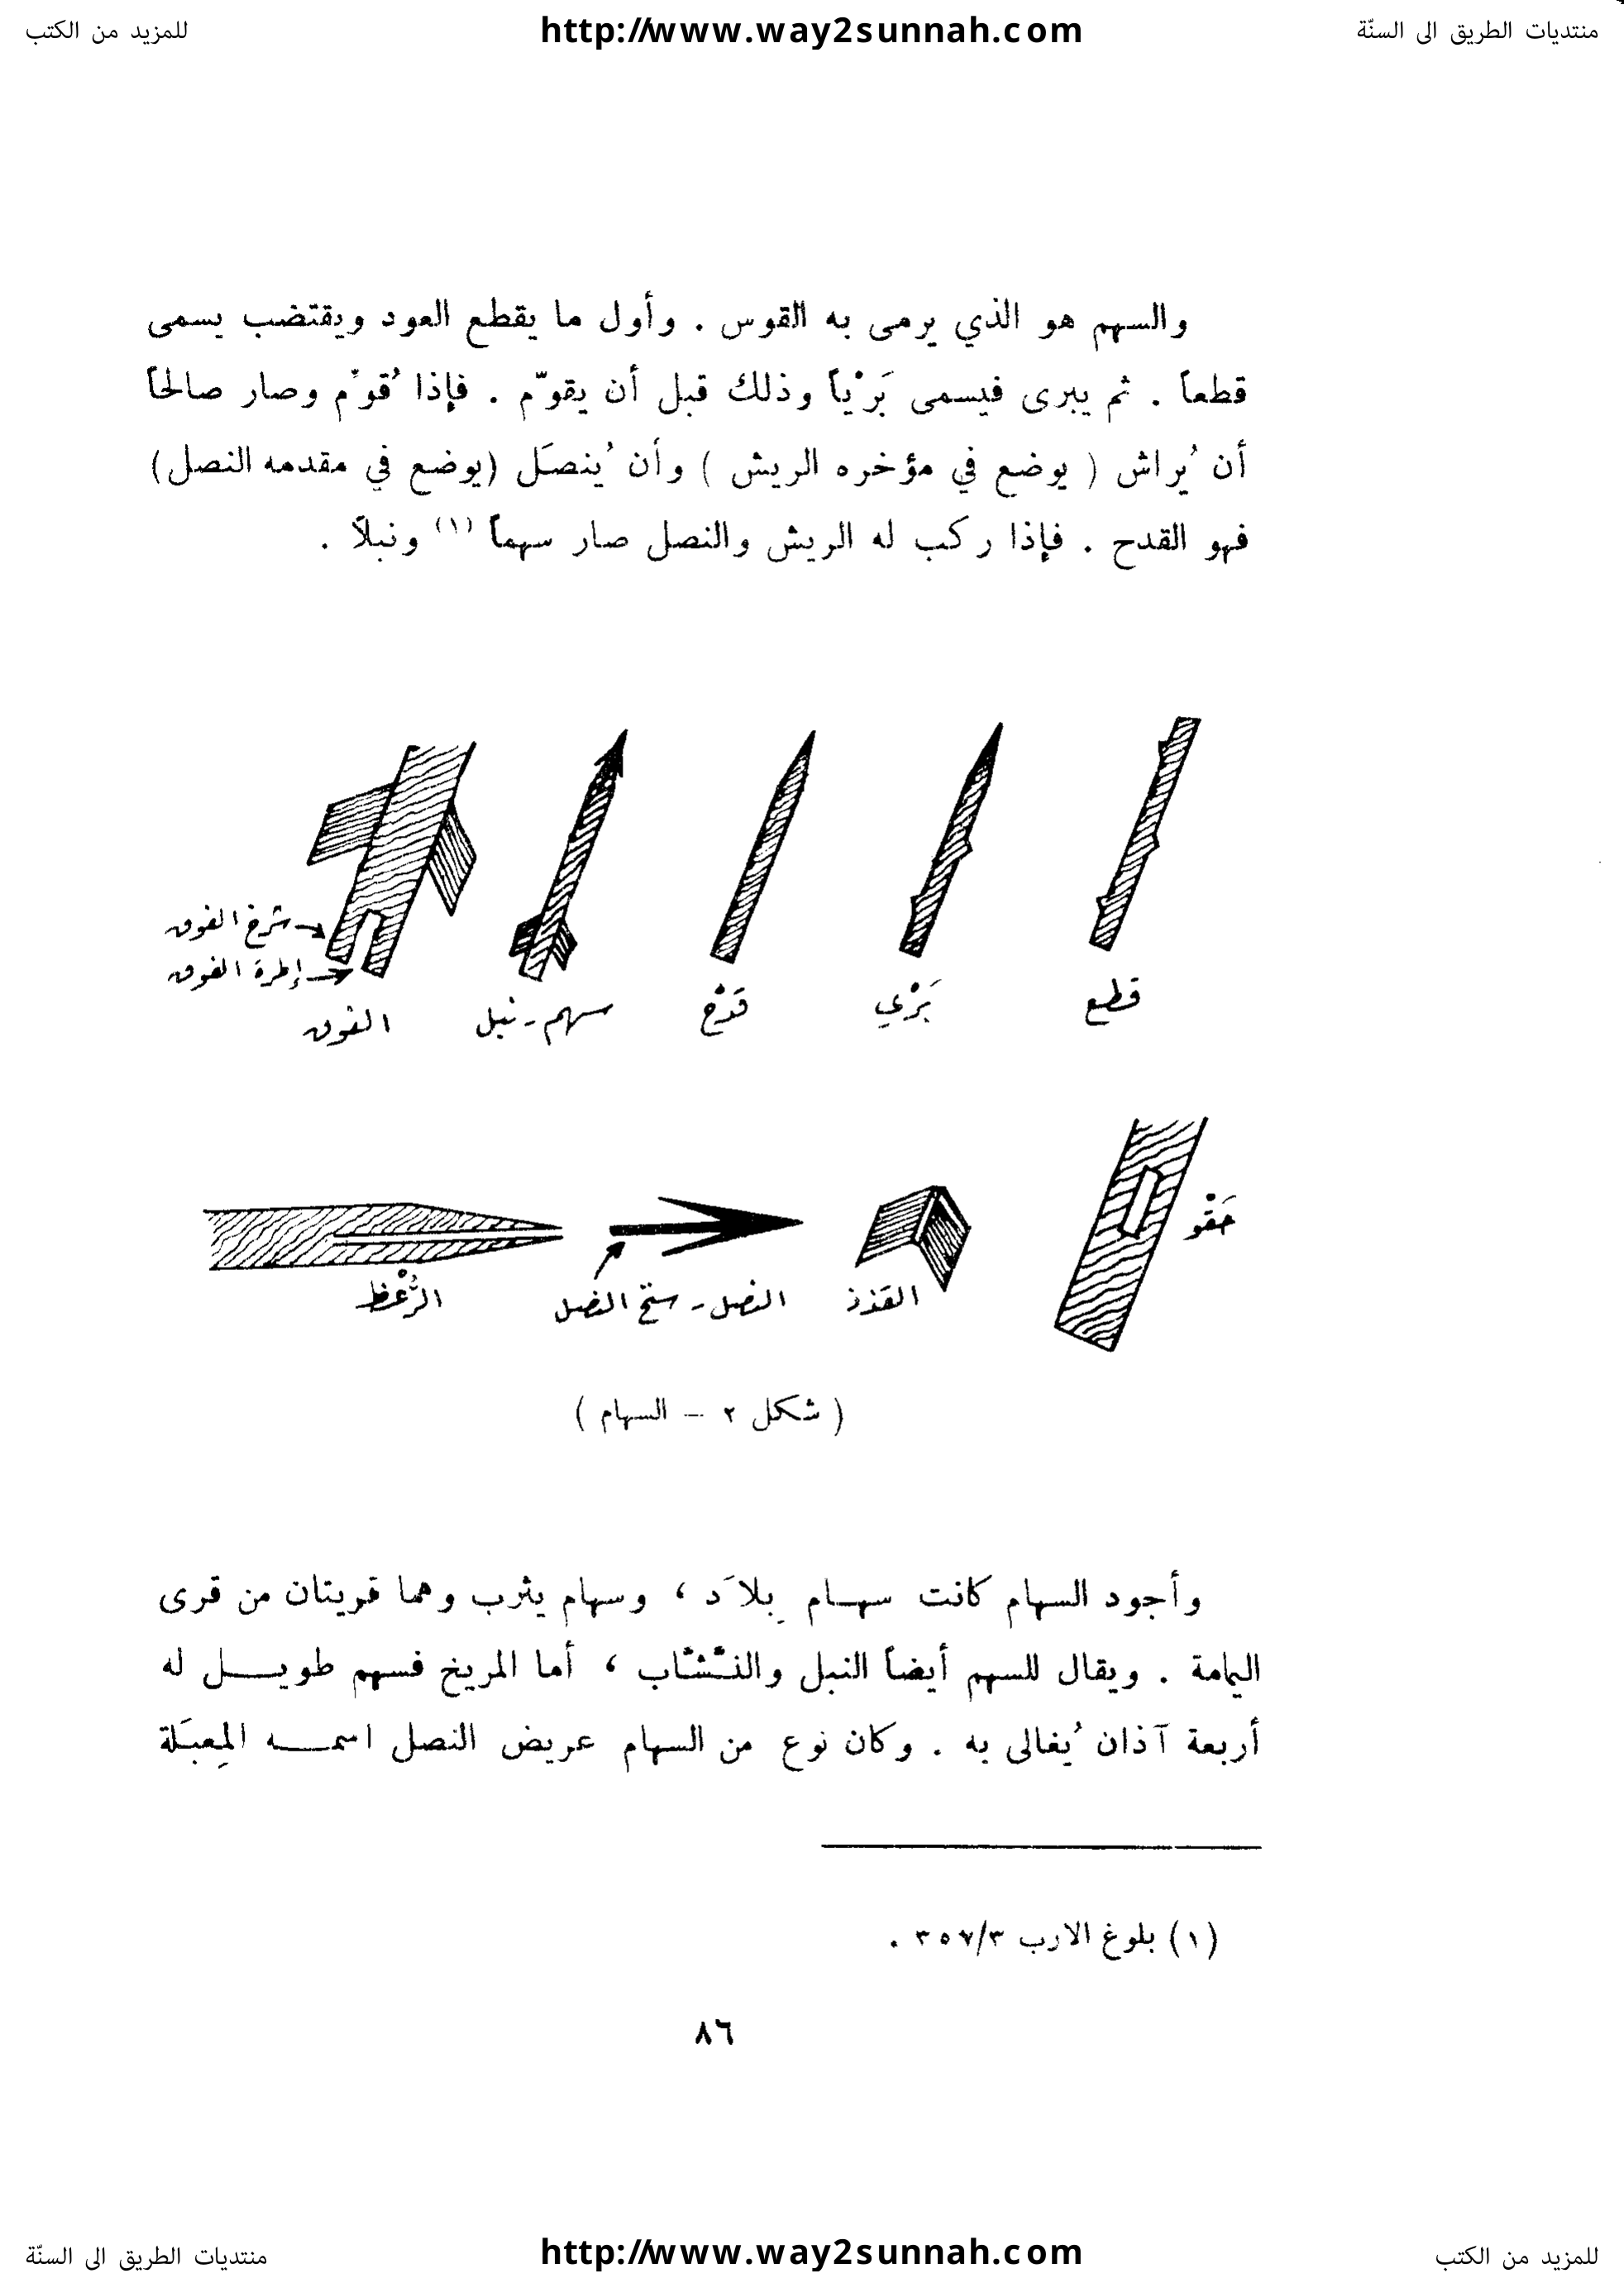 منتديات الطريق الى السنّة http://www.way2sunnah.com للمزيد من الكتب
والسهم هو الذي يرمى به القوس . وأول ما يقطع العود ويقتضب يسمى
قطعاً . ثم يبرى فيسمى بَرْياً وذلك قبل أن يقوّم . فإذا قُوِّم وصار صالحاً
أن يُراش ( يوضع في مؤخره الريش ) وأن يُنصَل (يوضع في مقدمه النصل)
فهو القدح . فإذا ركب له الريش والنصل صار سهماً (١) ونبلاً .
قطع
بَرْي
قدْح
سهم - نبل
الفوق
شرخ الفوق
إطرة الفوق
حَقْو
القذذ
النصل - سنخ النصل
الرُّعْظ
( شكل ٢ – السهام )
وأجود السهام كانت سهـام بِلاَد ، وسهام يثرب وهما قريتان من قرى
اليمامة . ويقال للسهم أيضاً النبل والنُّشّاب ، أما المريخ فسهم طويـــل له
أربعة آذان يُغالى به . وكان نوع من السهام عريض النصل اسمـــه المِعبَلة
(١) بلوغ الارب ٣/٣٥٧ .
٨٦
للمزيد من الكتب http://www.way2sunnah.com منتديات الطريق الى السنّة